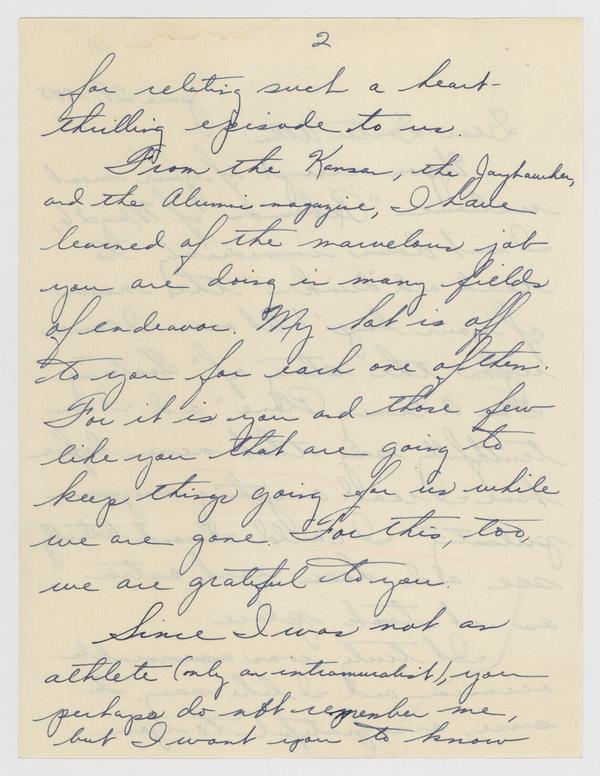 2
for relating such a heart-
thrilling episode to us.
From the Kansan, the Jayhawker,
and the Alumni magazine, I have
learned of the marvelous job
you are doing in many fields
of endeavor. My hat is off
to you for each one of them.
For it is you and those few
like you that are going to
keep things going for us while
we are gone. For this, too,
we are grateful to you.
Since I was not an
athlete (only an intramuralist), you
perhaps do not remember me,
but I want you to know